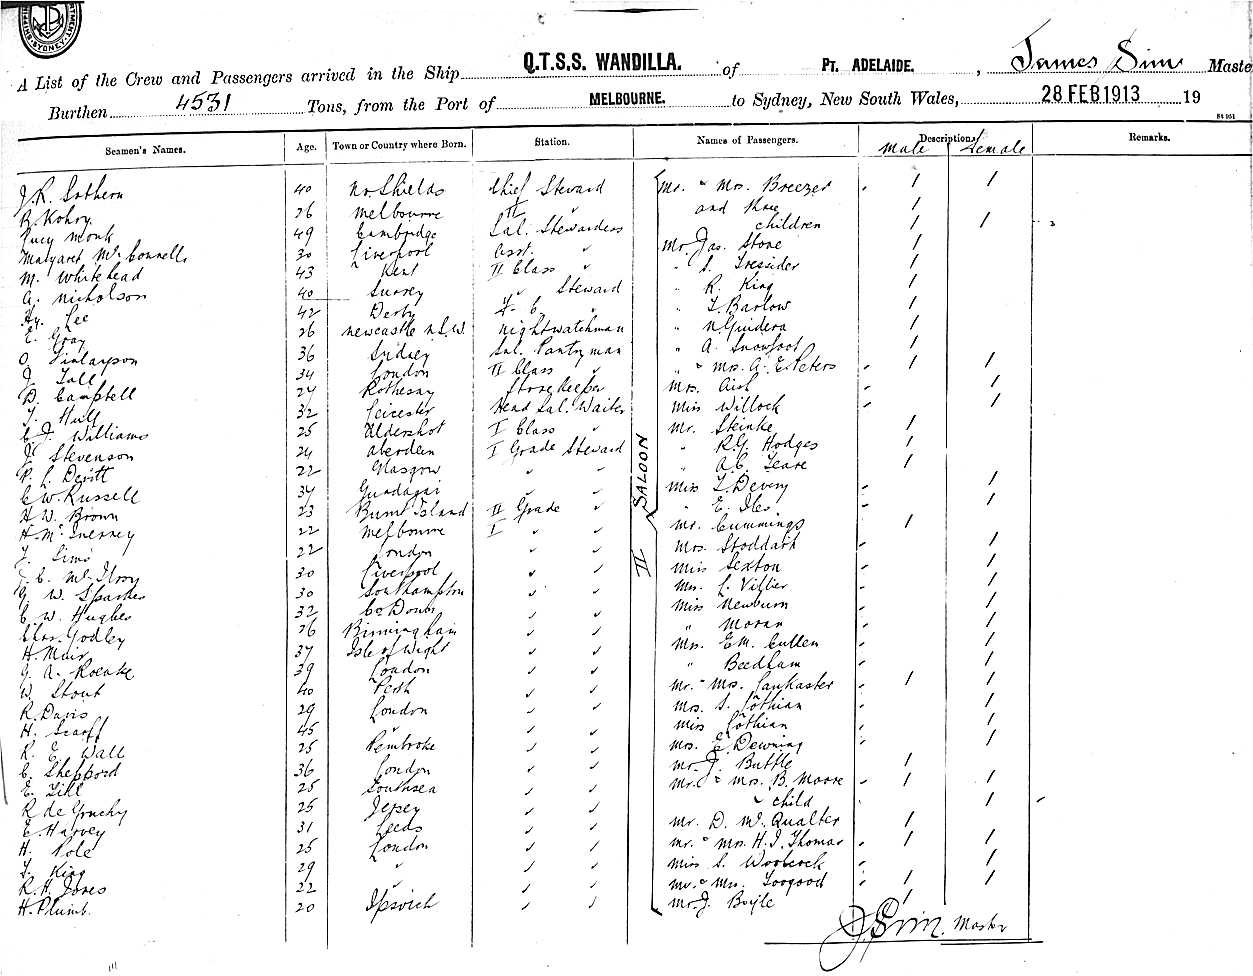 SYDNEY
Q.T.S.S. WANDILLA.
A List of the Crew and Passengers arrived in the Ship Q.T.S.S. WANDILLA. of PT. ADELAIDE. , James Sim Maste
Burthen 4531 Tons, from the Port of MELBOURNE. to Sydney, New South Wales, 28 FEB 1913 19
Seamen's Names. Age. Town or Country where Born. Station. Names of Passengers. Descriptions Remarks.
Male Female
J.R. Sothern 40 No. Shields Chief Steward Mr. " Mrs. Breezer 1 1
R. Kohry 26 Melbourne II " and three 1
Lucy Monk 49 Cambridge Sal. Stewardess children 1 1
Margaret Mc Connell 30 Liverpool Asst. " Mr. Jas. Stone 1
M. Whitehead 43 Kent II Class " " S. Tressider 1
A. Nicholson 40 Surrey " Steward " R. King 1
Hy. Lee 42 Derby " T. Barlow 1
E. Gray 26 Newcastle N.S.W. Nightwatchman " 1
O. Finlayson 36 Sydney Sal. Pantryman " A. Snowfoot 1
J. Tall 34 London II Class " " " Mrs. A. E. Peters 1 1
D. Campbell 27 Rothesay Storekeeper Mrs. 1
T. Hull 32 Leicester Head Sal. Waiter Miss Willock 1
C. J. Williams 25 Aldershot I Class " Mr. Steinke 1
J. Stevenson 24 Aberdeen I Grade Steward " R.G. Hodges 1
P. L. Devitt 22 Glasgow " " " A.C. Teare 1
C.W. Russell 34 Gundagai " " Miss T. Devery 1
H. W. Brown 23 Burnt Island II Grade " " E. Iles 1
H. McInerney 22 Melbourne I " " Mr. Cummings 1
T. Sims 22 London " " Mrs. Stoddart 1
J. C. McIlroy 30 Liverpool " " Miss Sexton 1
G. W. Sparkes 30 Southampton " " Mrs. L. Villier 1
C. W. Hughes 32 Co Down " " Miss Newburn 1
Chas. Godley 26 Birmingham " " " Moran 1
H. Muir 37 Isle of Wight " " Mrs. E.M. Cullen 1
G. A. Roenke 39 London " " " Beedham 1
W. Stout 40 Perth " " Mr. " Mrs. Lankaster 1 1
R. Davis 29 London " " Mrs. S. Lothian 1
H. Scarff 45 " " " Miss Lothian 1
R. E. Wall 25 Pembroke " " Mrs. E. Dewning 1
C. Sheppard 36 London " " Mr. J. Buttle 1
E. Till 25 Southsea " " Mr. " Mrs. B. Moore 1 1
R. de Gruchy 25 Jersey " " " child 1
E. Harvey 31 Leeds " " Mr. D. W. Qualter 1
H. Pole 25 London " " Mr. " Mrs. H.J. Thomas 1 1
T. King 29 " " " Miss S. Woolcock 1
R. H. Jones 22 " " " Mr. " Mrs. Toogood 1 1
H. Plumb. 20 Ipswich " " Mr. J. Boyle 1
SALOON
II
J. Sim. Master